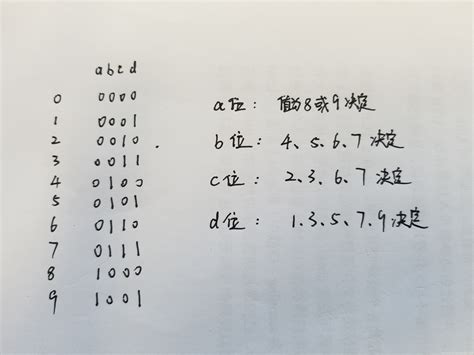 abcd
0 0000
1 0001
2 0010
3 0011
4 0100
5 0101
6 0110
7 0111
8 1000
9 1001
a位: 值为8或9决定
b位: 4、5、6、7决定
c位: 2、3、6、7决定
d位: 1、3、5、7、9决定